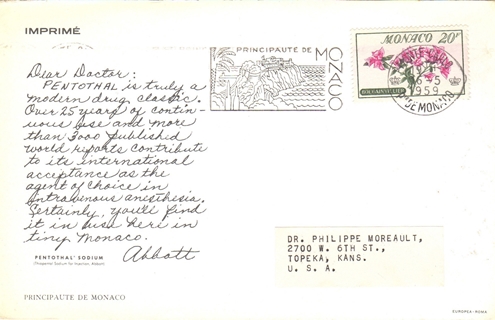 IMPRIMÉ
Dear Doctor:
PENTOTHAL is truly a
modern drug classic.
Over 25 years of contin-
uous use and more
than 3000 published
world reports contribute
to its international
acceptance as the
agent of choice in
intravenous anesthesia.
Certainly, you'll find
it in use here in
tiny Monaco.
Abbott
PENTOTHAL® SODIUM
(Thiopental Sodium for Injection, Abbott)
PRINCIPAUTE DE MONACO
PRINCIPAUTÉ DE
MONACO
MONACO 20F
MONTE-CARLO
6-5
1959
PTE DE MONACO
DR. PHILIPPE MOREAULT,
2700 W. 6TH ST.,
TOPEKA, KANS.
U. S. A.
EUROPEA - ROMA